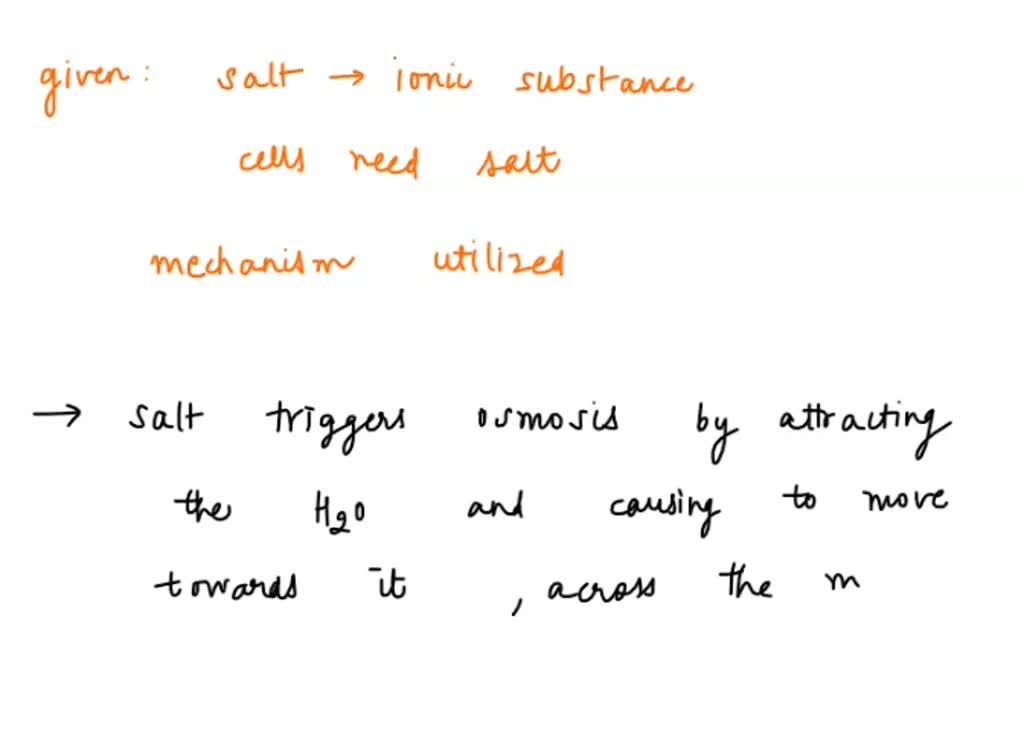 given: salt → ionic substance
cells need salt
mechanism utilized
→ salt triggers osmosis by attracting
the H2O and causing to move
towards it , across the m